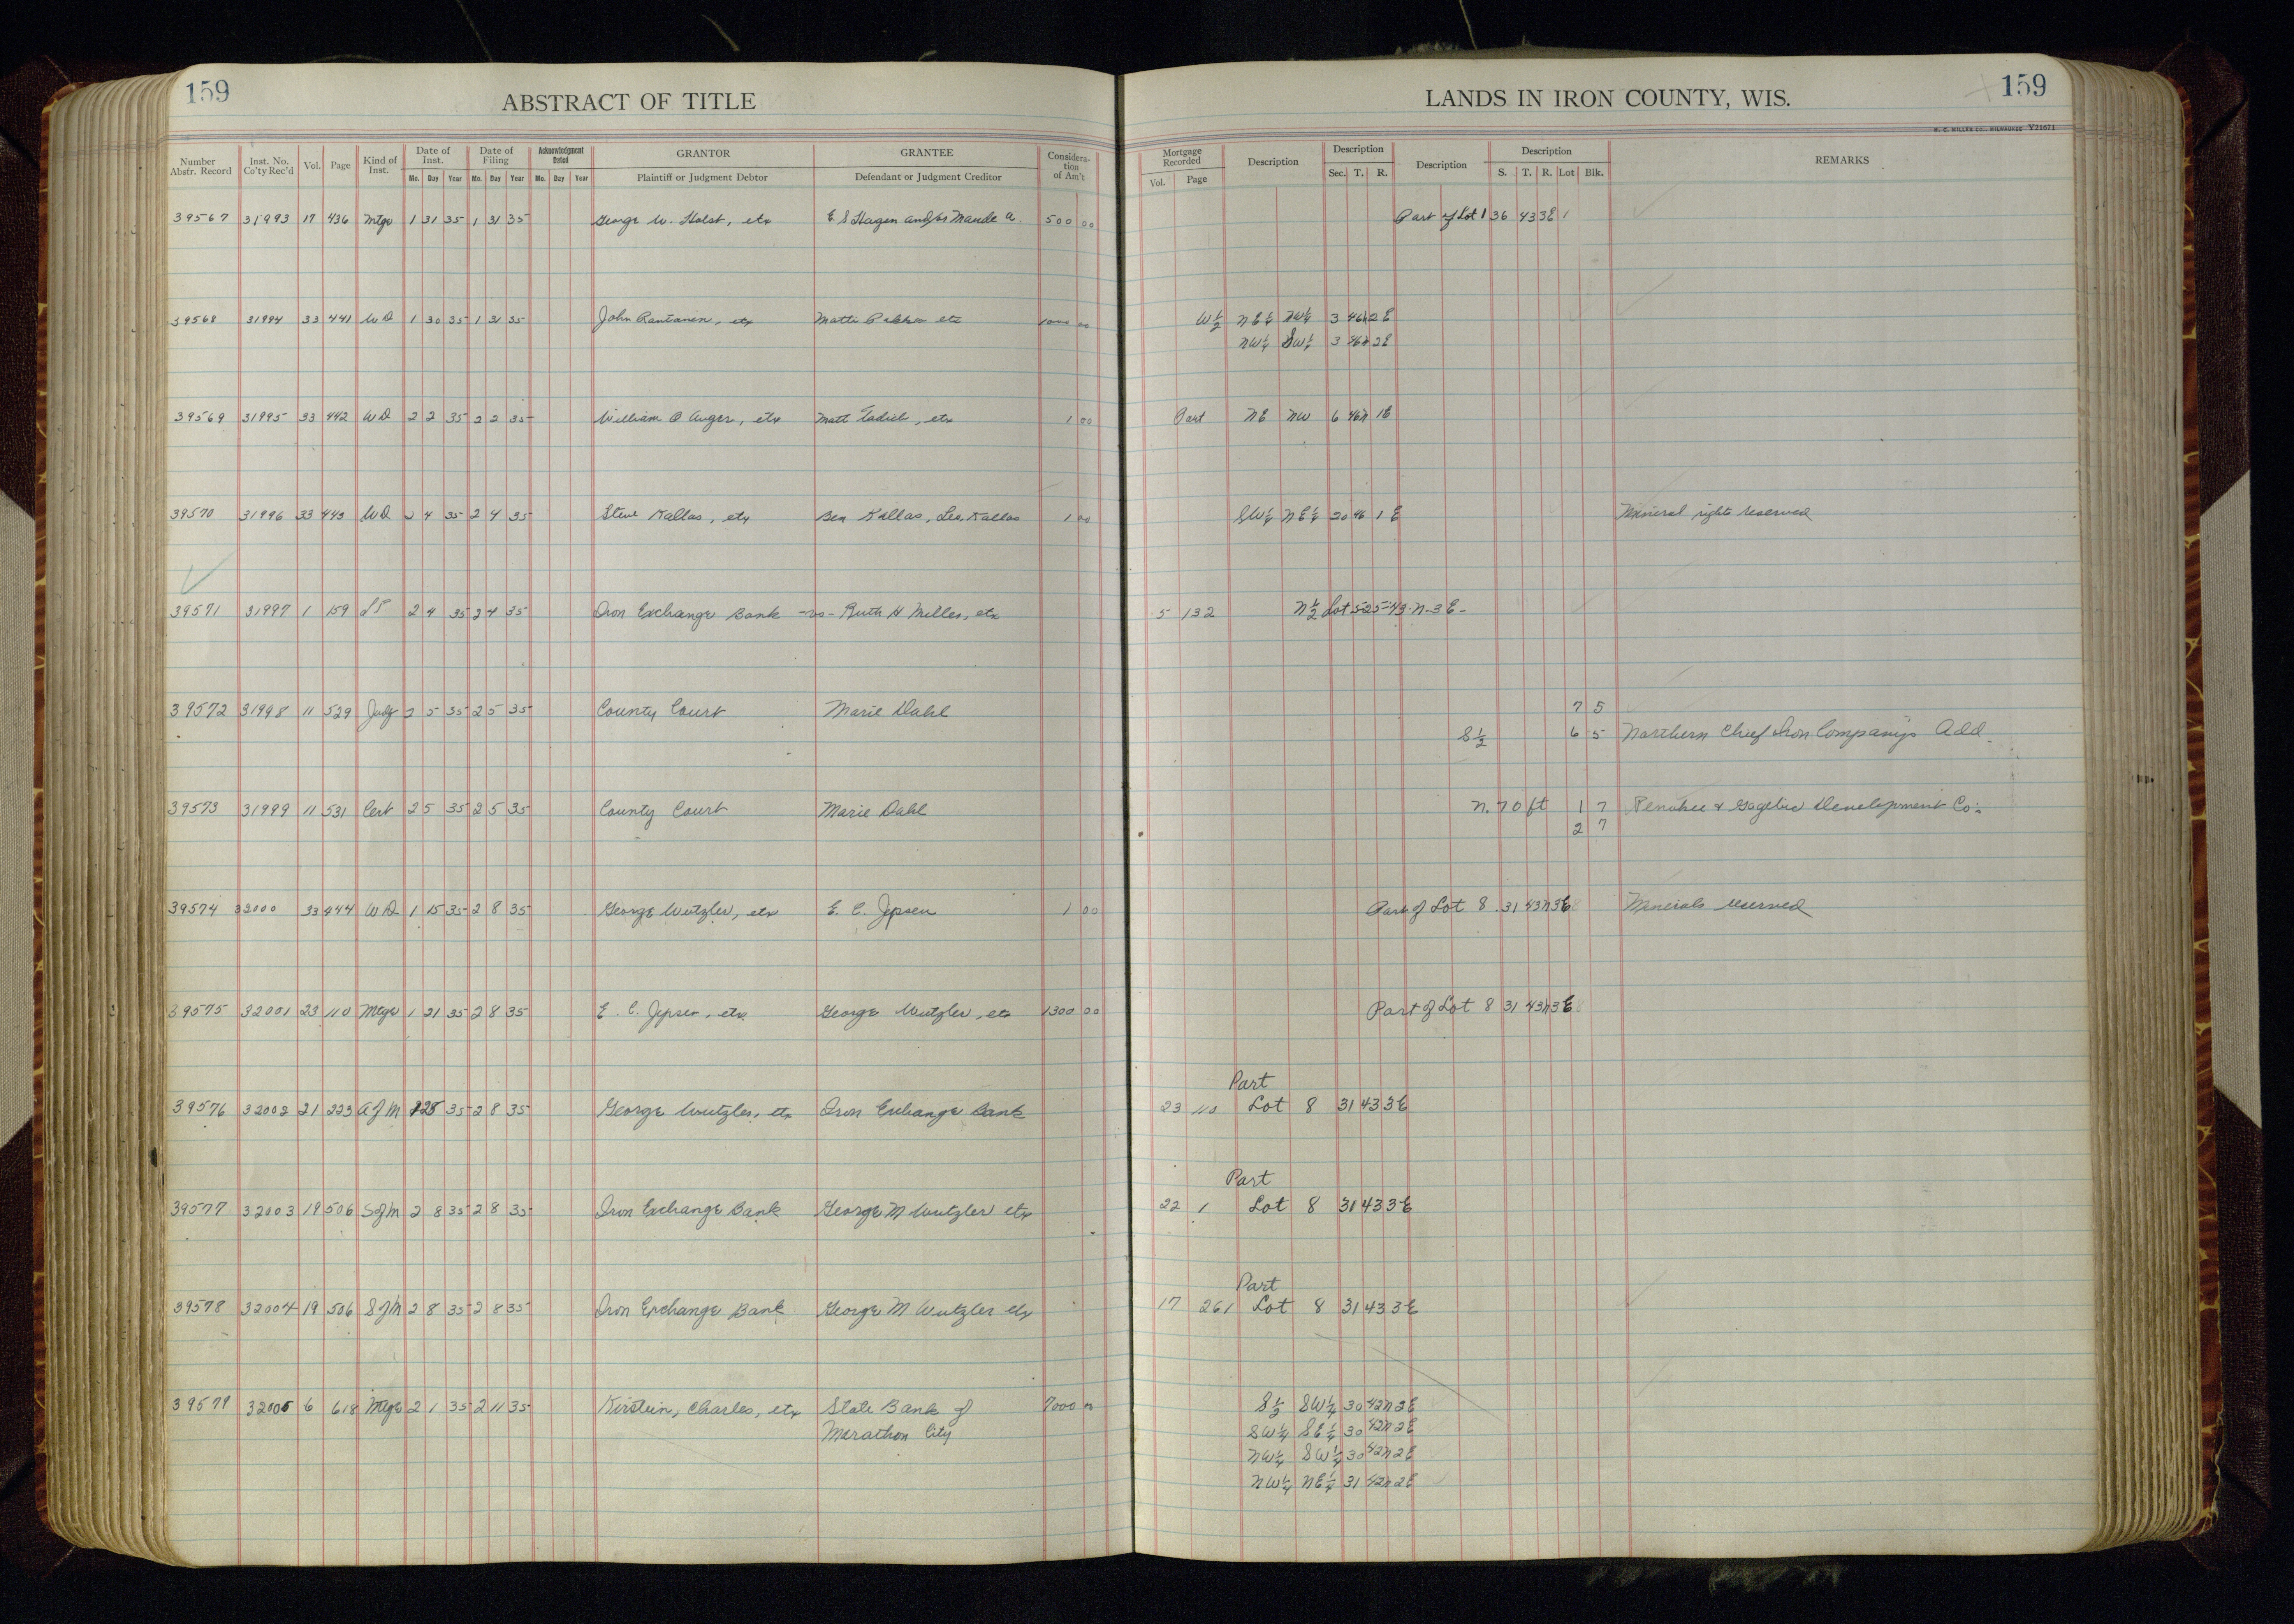 159
ABSTRACT OF TITLE
LANDS IN IRON COUNTY, WIS.
159
H. C. MILLER CO., MILWAUKEE Y21671
Number Abstr. Record Inst. No. Co'ty Rec'd Vol. Page Kind of Inst. Date of Inst. Date of Filing Acknowledgment Dated GRANTOR GRANTEE Considera-tion of Am't Mortgage Recorded Description Description Description Description REMARKS
Mo. Day Year Mo. Day Year Mo. Day Year Plaintiff or Judgment Debtor Defendant or Judgment Creditor Vol. Page Sec. T. R. S. T. R. Lot Blk.
39567 31993 17 436 Mtge 1 31 35 1 31 35 George W. Holst, etx E. S Hagen and/or Maude A. 500 00 Part of Lot 1 36 43 3E 1
39568 31994 33 441 WD 1 30 35 1 31 35 John Rantanen, etx Matti etx W½ NE¼ SW¼ 3 46N 2E
NW¼ SW¼ 3 46N 2E
39569 31995 33 442 WD 2 2 35 2 2 35 William O Auger, etx Matt Tadich, etx 1 00 Part NE NW 6 46N 1E
39570 31996 33 443 WD 2 4 35 2 4 35 Steve Kallas, etx Ben Kallas, Leo Kallas 1 00 SW¼ NE¼ 20 46 1 E Mineral rights reserved
39571 31997 1 159 LP 2 4 35 2 4 35 Iron Exchange Bank -vs- Ruth H Miller, etx 5 132 N½ Lot 5-25-43-N-3E-
39572 31998 11 529 Judg 2 5 35 2 5 35 County Court Marie Dahl 7 5
S½ 6 5 Northern Chief Iron Company's Add.
39573 31999 11 531 Cert 2 5 35 2 5 35 County Court Marie Dahl N. 70 ft 1 7 Penokee & Gogebic Development Co.
2 7
39574 32000 33 444 WD 1 15 35 2 8 35 George Wutzler, etx E. C. Jepsen 1 00 Part of Lot 8 31 43N 3E 8 Minerals reserved
39575 32001 23 110 Mtge 1 21 35 2 8 35 E. C. Jepsen, etx George Wutzler, etx 1300 00 Part of Lot 8 31 43N 3E 8
Part
39576 32002 21 223 A of M 1 28 35 2 8 35 George Wutzler, etx Iron Exchange Bank 23 110 Lot 8 31 43 3E
Part
39577 32003 19 506 S of M 2 8 35 2 8 35 Iron Exchange Bank George M Wutzler etx 22 1 Lot 8 31 43 3E
Part
39578 32004 19 506 S of M 2 8 35 2 8 35 Iron Exchange Bank George M Wutzler etx 17 261 Lot 8 31 43 3E
39579 32005 6 618 Mtge 2 1 35 2 11 35 Kirstein, Charles, etx State Bank of 7000 00 S½ SW¼ 30 42N 2E
Marathon City SW¼ SE¼ 30 42N 2E
NW¼ SW¼ 30 42N 2E
NW¼ NE¼ 31 42N 2E